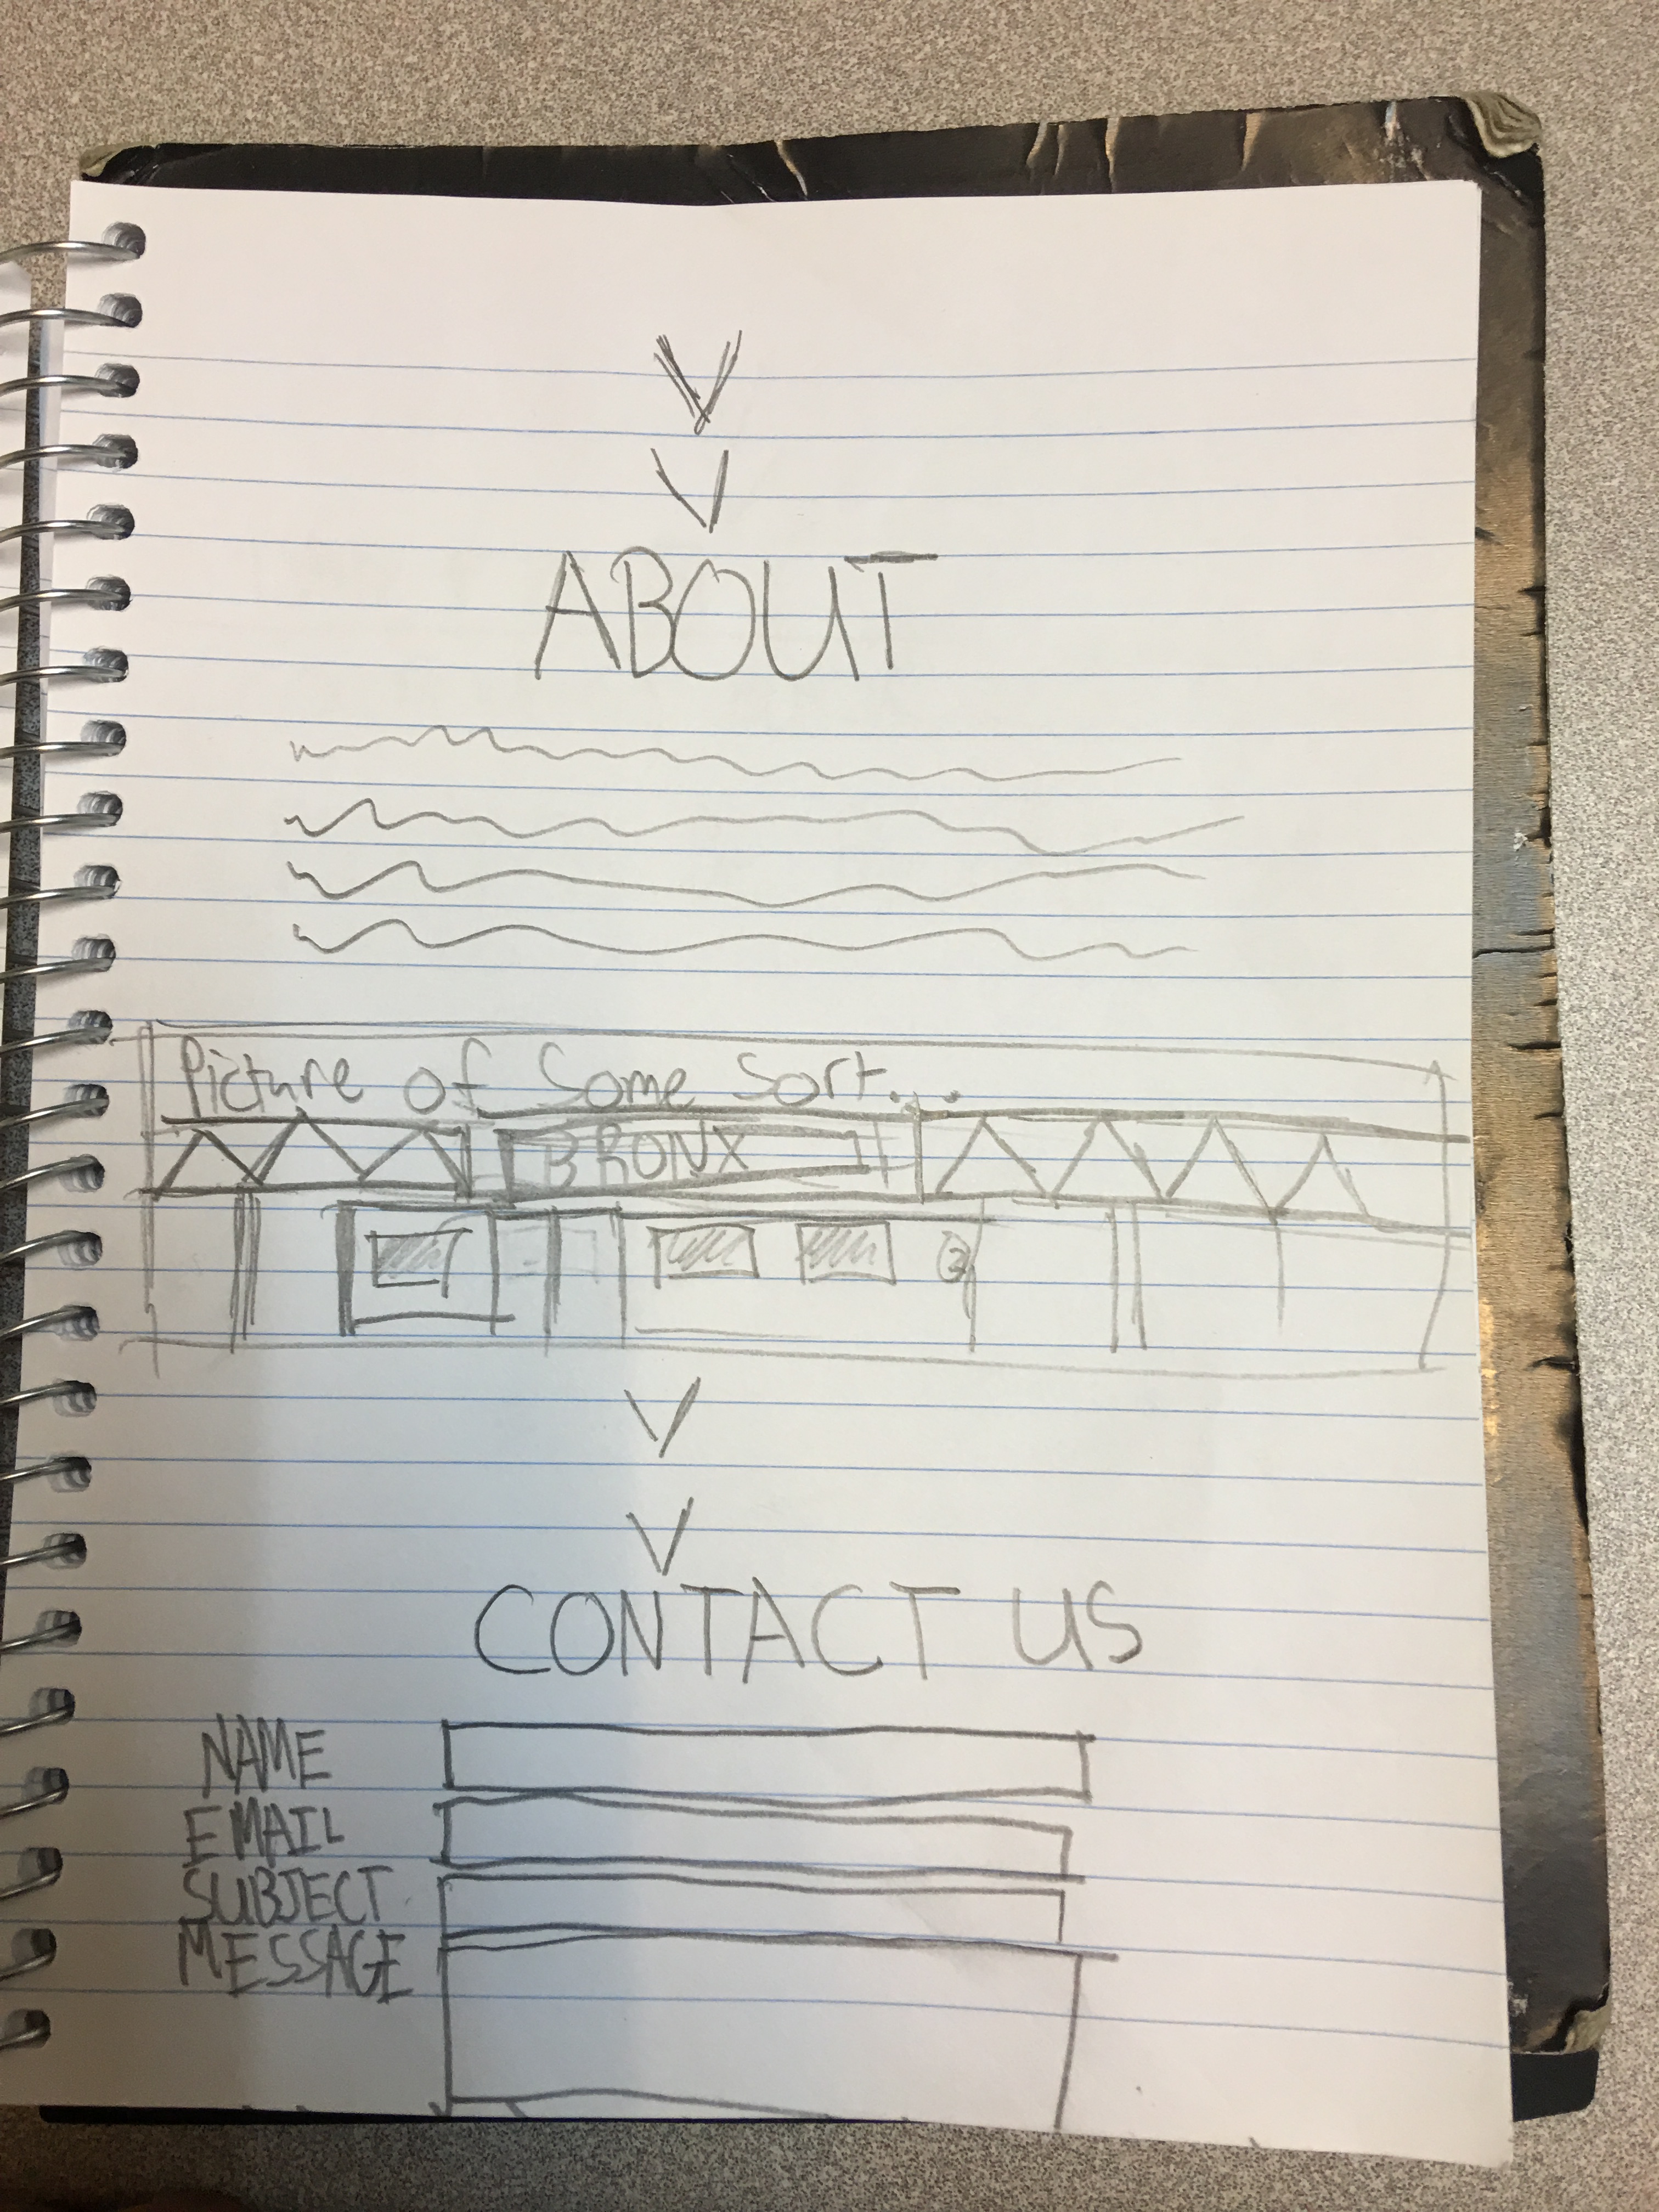 ABOUT
Picture of Some Sort...
BRONX
2
CONTACT US
NAME
EMAIL
SUBJECT
MESSAGE